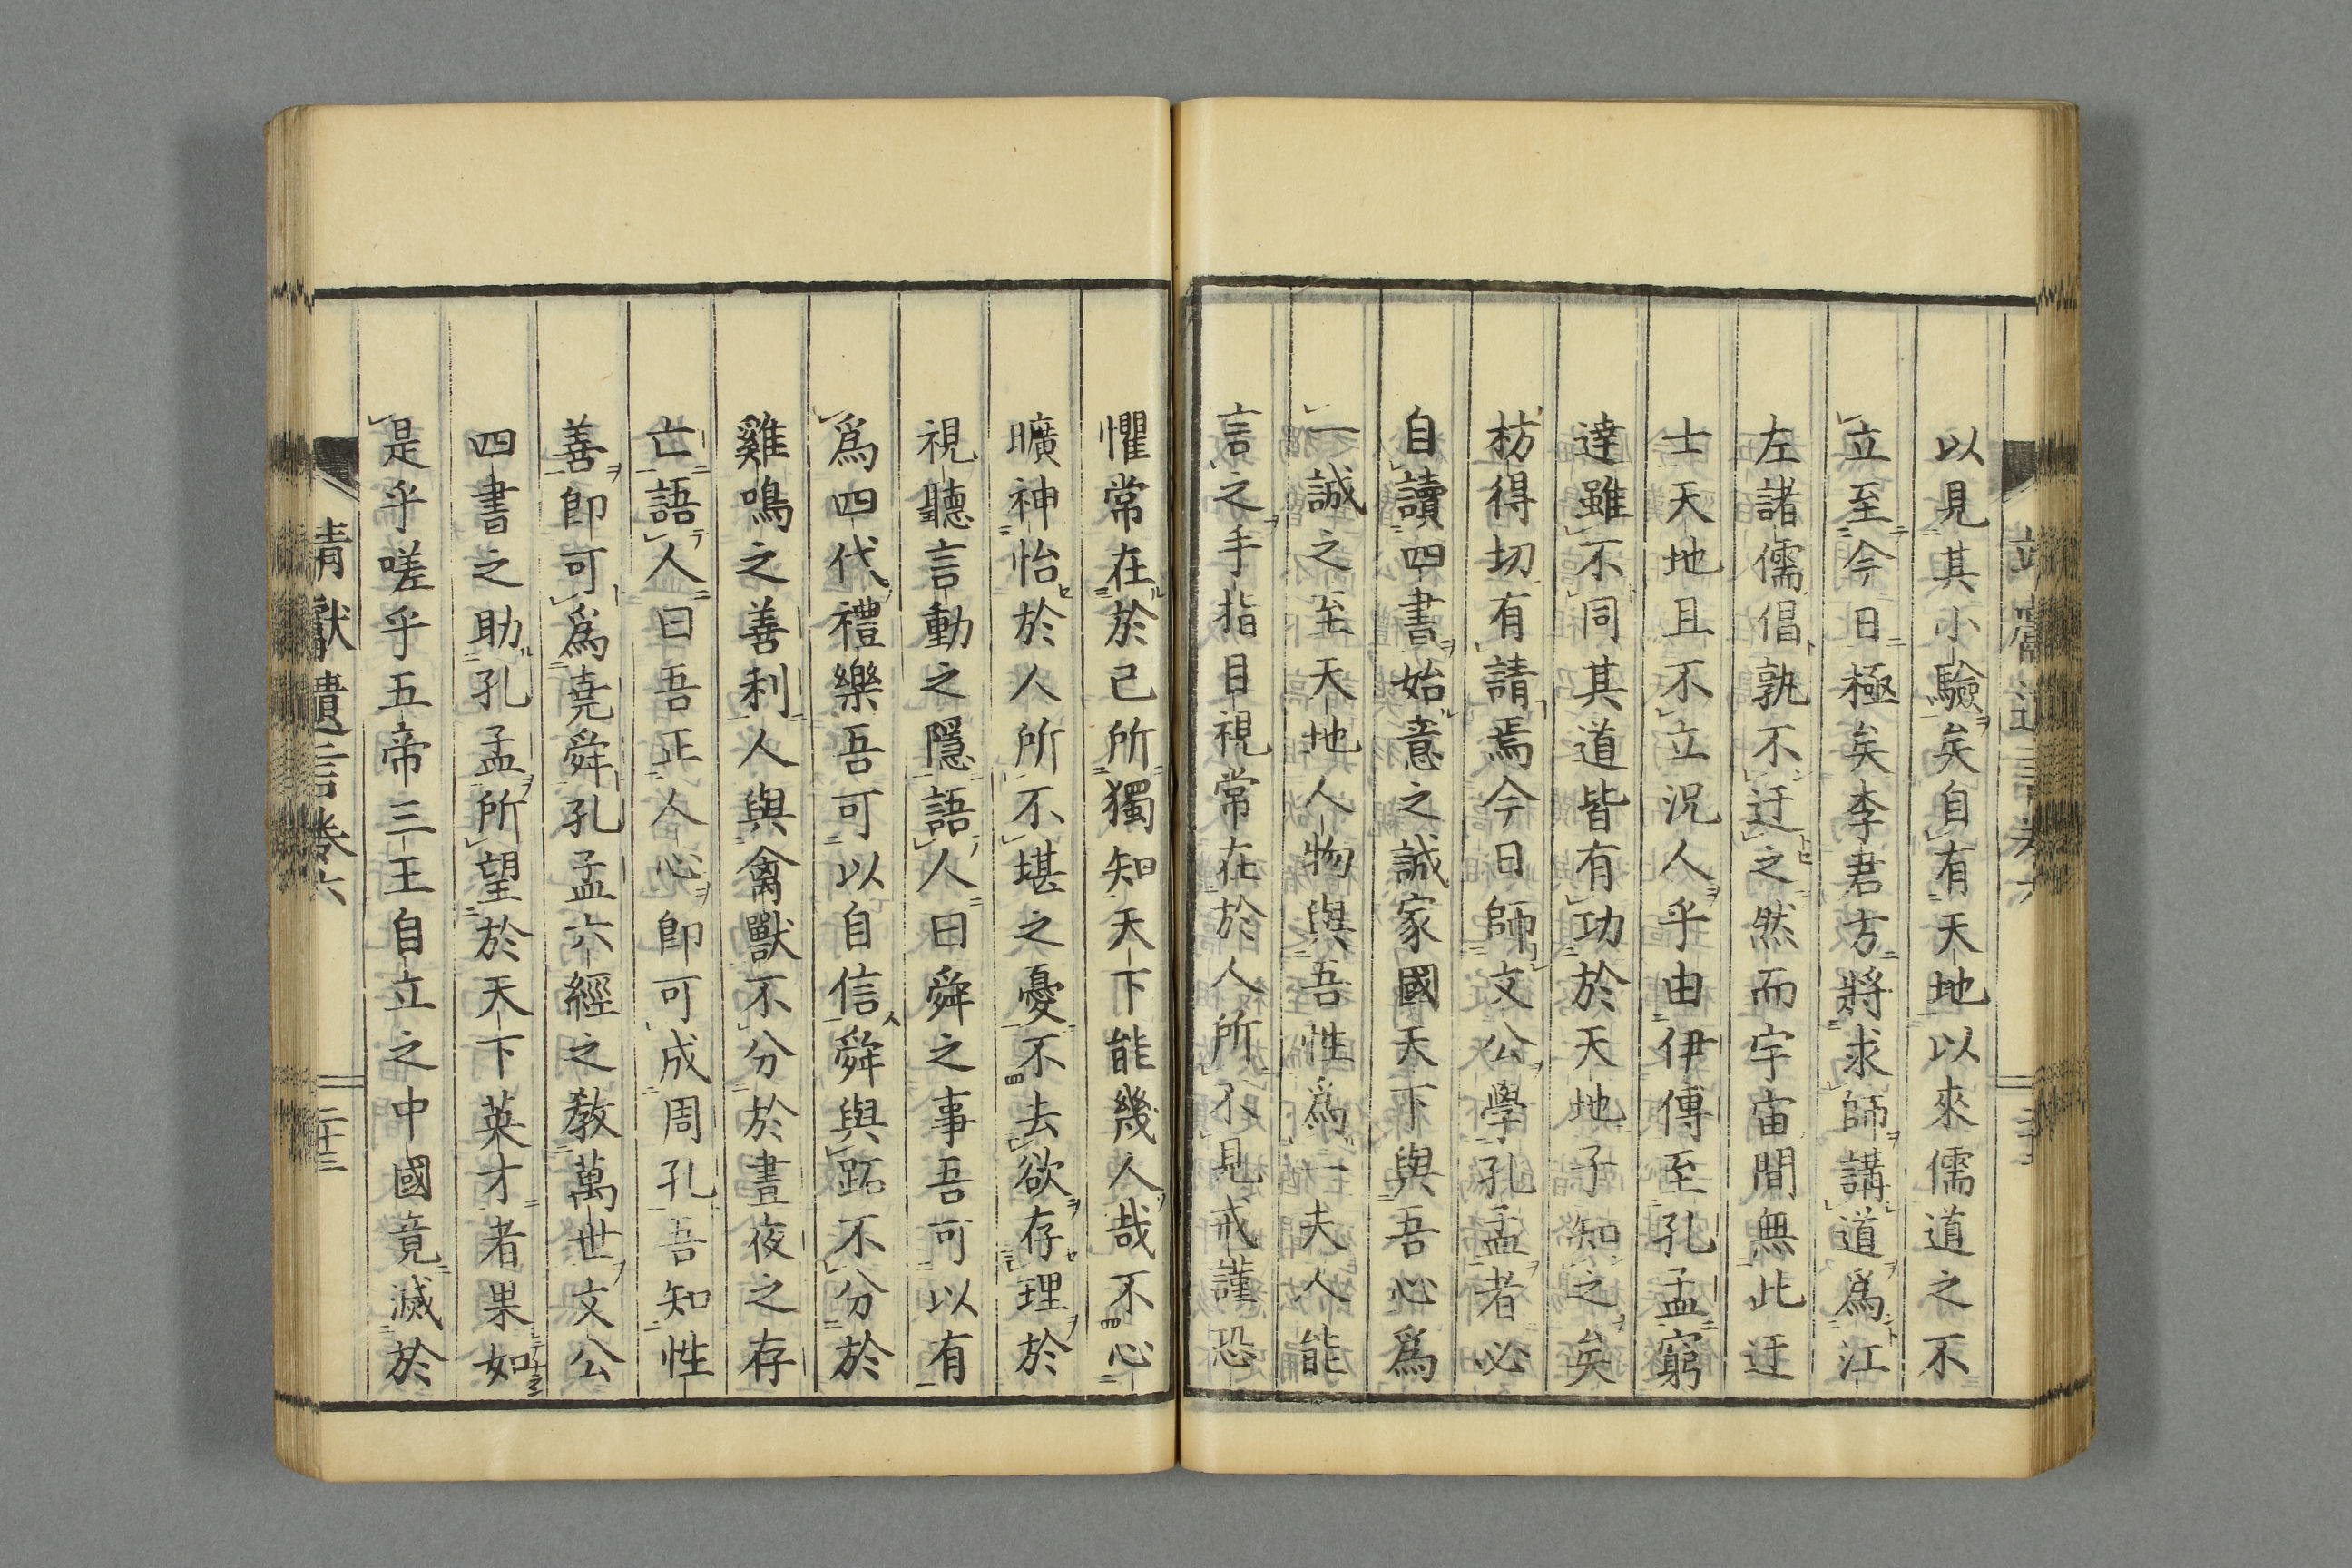 以見其小驗矣自有天地以來儒道之不
立至今日極矣李君方將求師講道爲江
左諸儒倡孰不迂之然而宇宙間無此迂
士天地且不立況人乎由伊傅至孔孟窮
達雖不同其道皆有功於天地子知之矣
枋得切有請焉今日師文公學孔孟者必
自讀四書始意之誠家國天下與吾心爲
一誠之至天地人物與吾性爲一夫人能
言之手指目視常在於人所不見戒謹恐
懼常在於己所獨知天下能幾人哉不心
曠神怡於人所不堪之憂不去欲存理於
視聽言動之隱語人曰舜之事吾可以有
爲四代禮樂吾可以自信舜與跖不分於
雞鳴之善利人與禽獸不分於晝夜之存
亡語人曰吾正人心卽可成周孔吾知性
善卽可爲堯舜孔孟六經之教萬世文公
四書之助孔孟所望於天下英才者果如
是乎嗟乎五帝三王自立之中國竟滅於
精獻遺言卷六
二十三